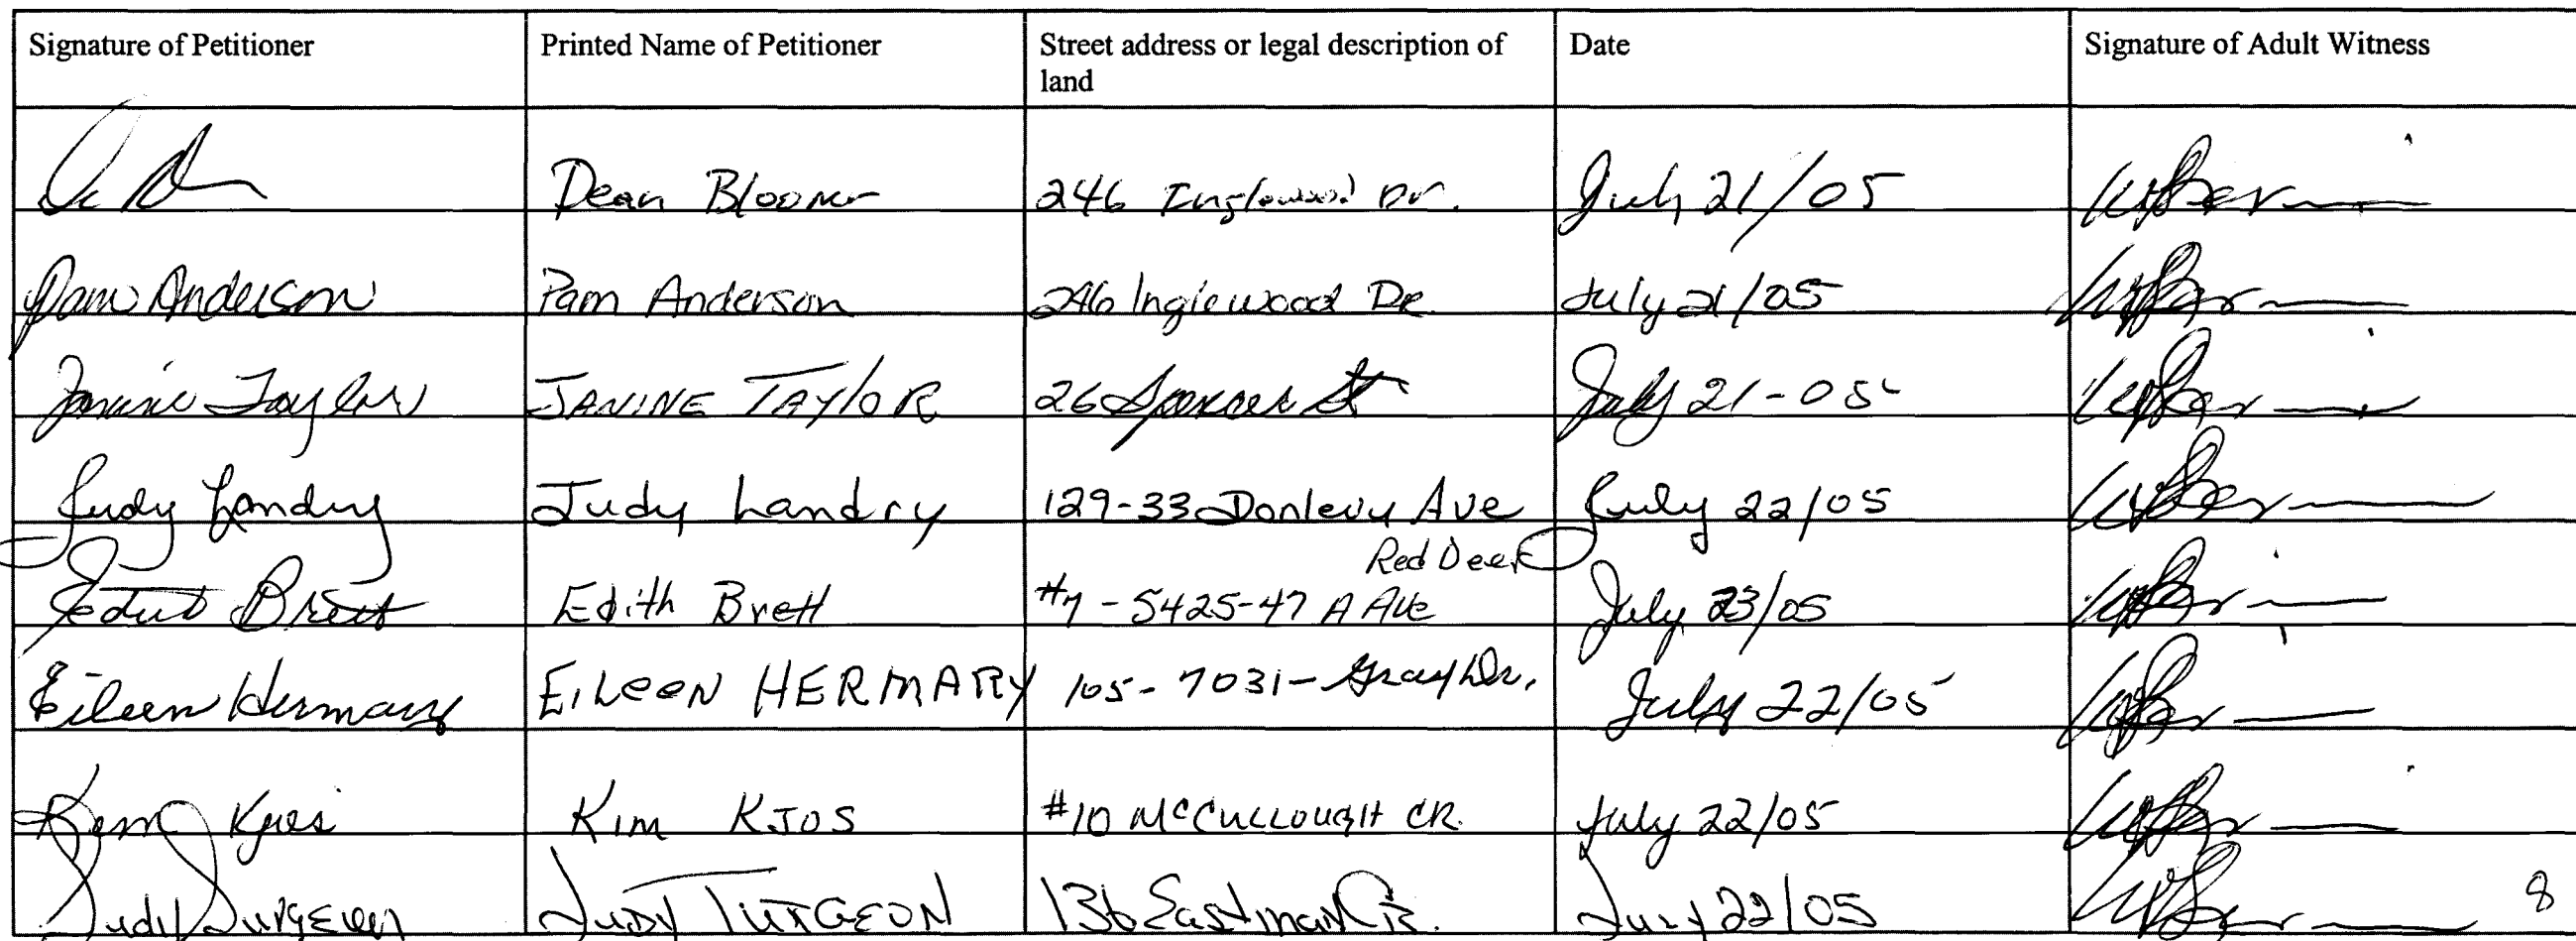 Signature of Petitioner Printed Name of Petitioner Street address or legal description of Date Signature of Adult Witness
land
Dean Bloomer 246 Inglewood Dr. July 21/05
Pam Anderson Pam Anderson 246 Inglewood Dr. July 21/05
Janine Taylor JANINE TAYLOR 26 Spencer St July 21-05
Judy Landry Judy Landry 129-33 Donlevy Ave July 22/05
Red Deer
Edith Brett Edith Brett #7-5425-47 A Ave July 23/05
Eileen Hermary EILEEN HERMARY 105-7031-Gray Dr. July 22/05
Kim Kjos Kim KJOS #10 McCULLOUGH CR. July 22/05
Judy Turgeon JUDY TURGEON 136 Eastman Cr. July 22/05 8